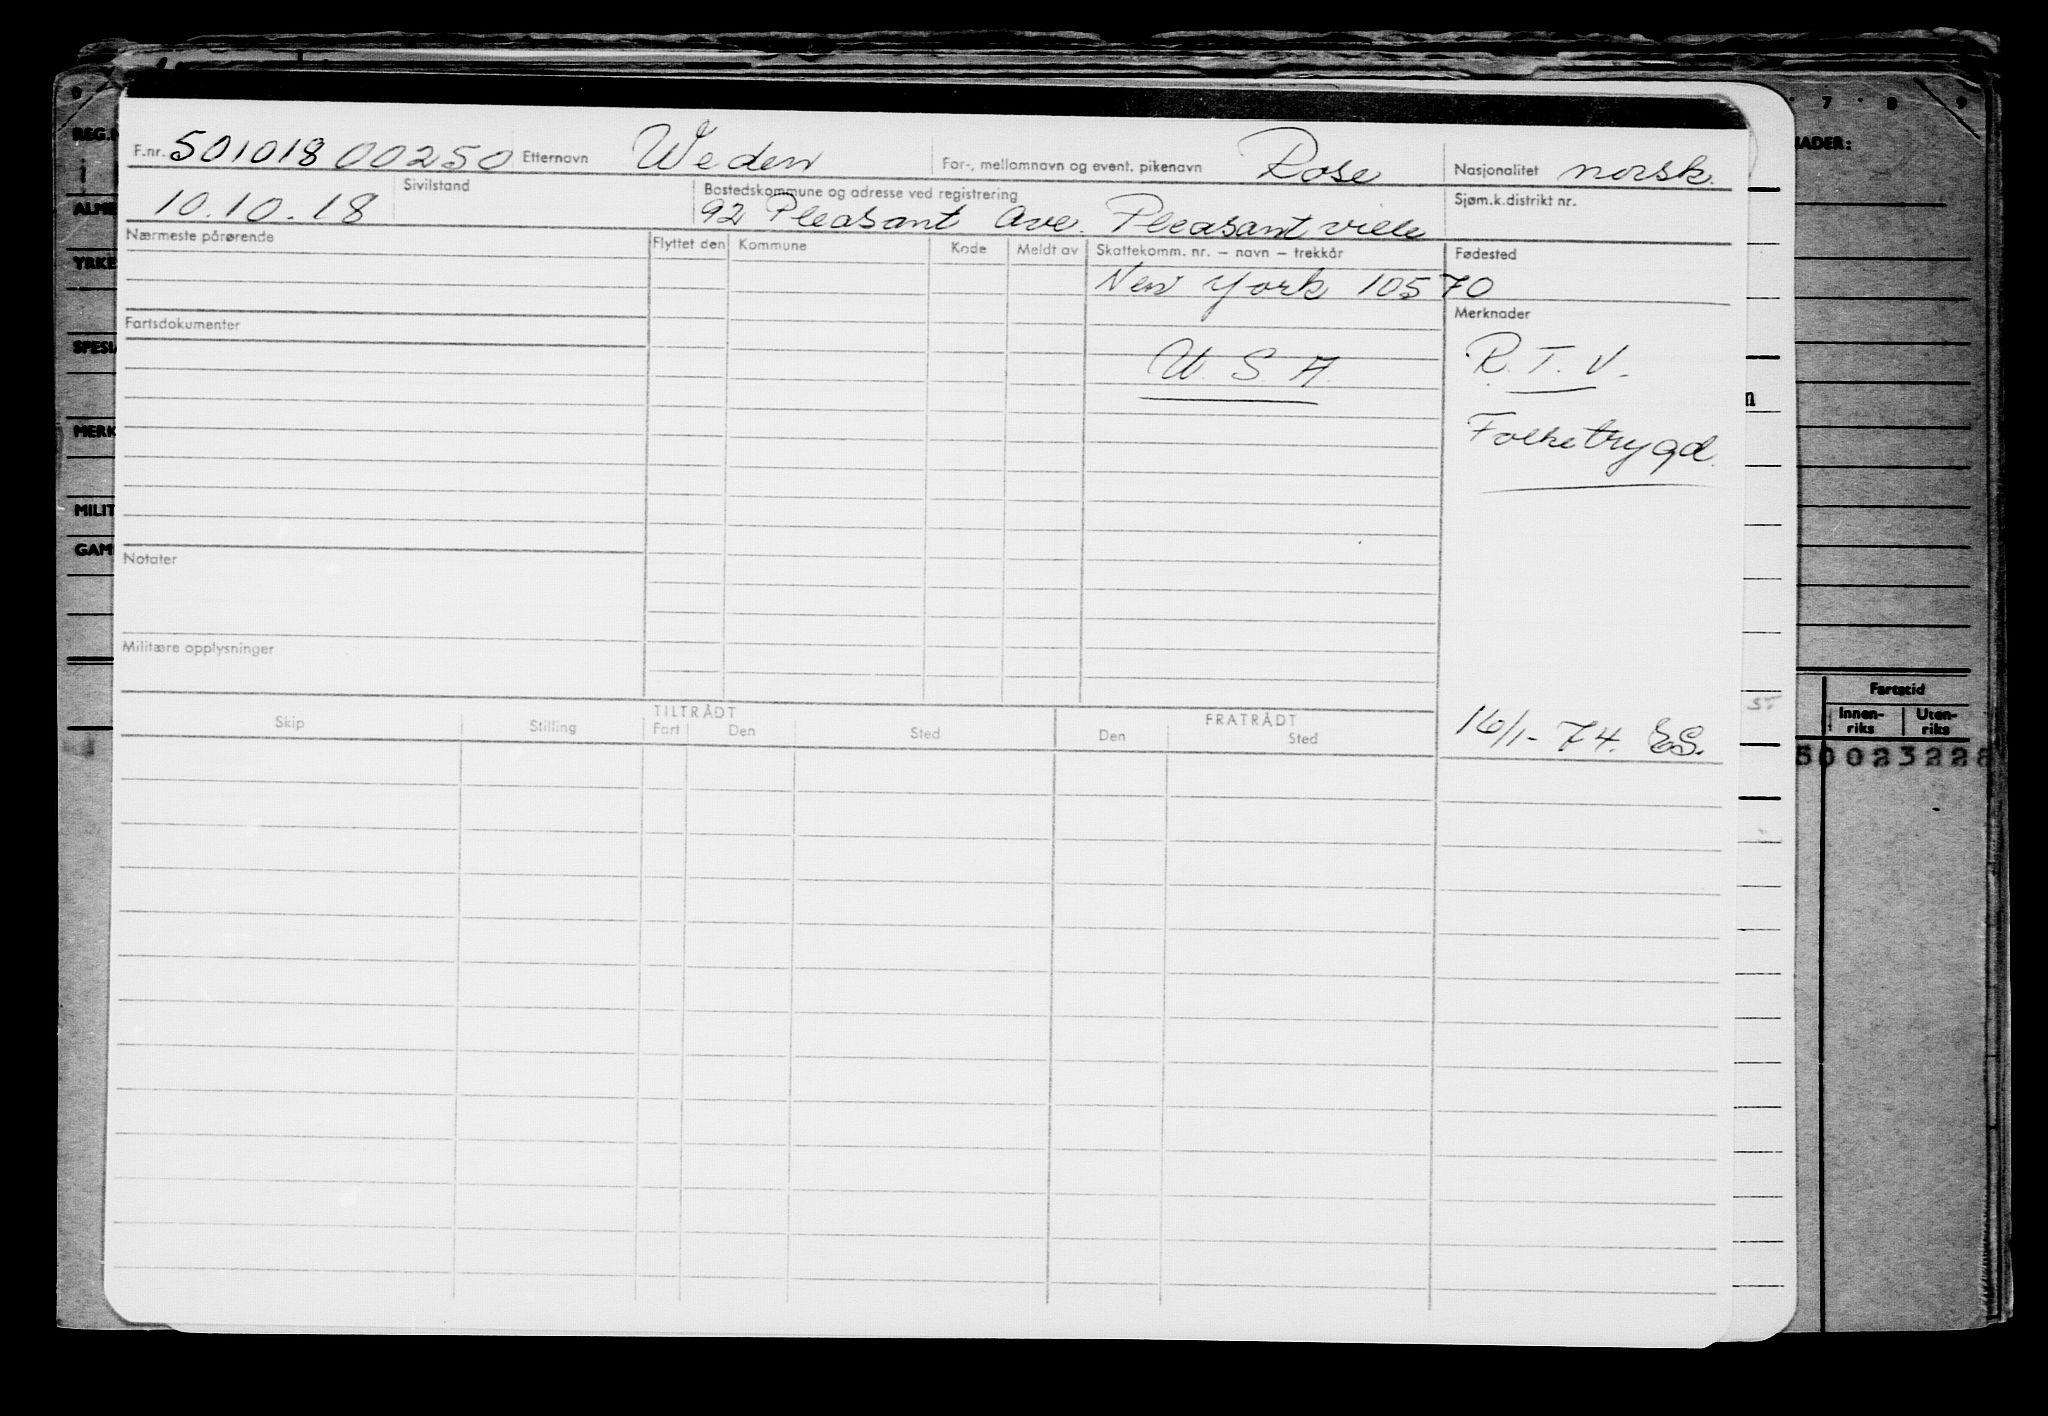 F.nr. 501018 00250 Etternavn Weden For-, mellomnavn og event. pikenavn Rose Nasjonalitet norsk.
10.10.18 Sivilstand Bostedskommune og adresse ved registrering 92 Pleasant Ave. Pleasantville Sjøm.k.distrikt nr.
Nærmeste pårørende Flyttet den Kommune Kode Meldt av Skattekomm. nr. – navn – trekkår Fødested
New York 10570
Fartsdokumenter Merknader
U. S. A. R. T. V.
Folketrygd.
Notater
Militære opplysninger
TILTRÅDT FRATRÅDT
Skip Stilling Fart Den Sted Den Sted
16/1-74. ES.
REG.N
ALME
YRKE
SPESI
MERK
MILIT
GAM
7 8 9
NADER:
Fartstid
Innen-riks Uten-riks
50023228